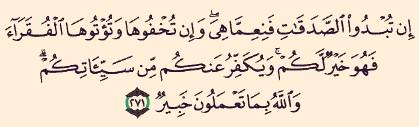 إِن تُبْدُوا۟ ٱلصَّدَقَـٰتِ فَنِعِمَّا هِىَ ۖ وَإِن تُخْفُوهَا وَتُؤْتُوهَا ٱلْفُقَرَآءَ
فَهُوَ خَيْرٌ لَّكُمْ ۚ وَيُكَفِّرُ عَنكُم مِّن سَيِّـَٔاتِكُمْ ۗ
وَٱللَّهُ بِمَا تَعْمَلُونَ خَبِيرٌ ٢٧١